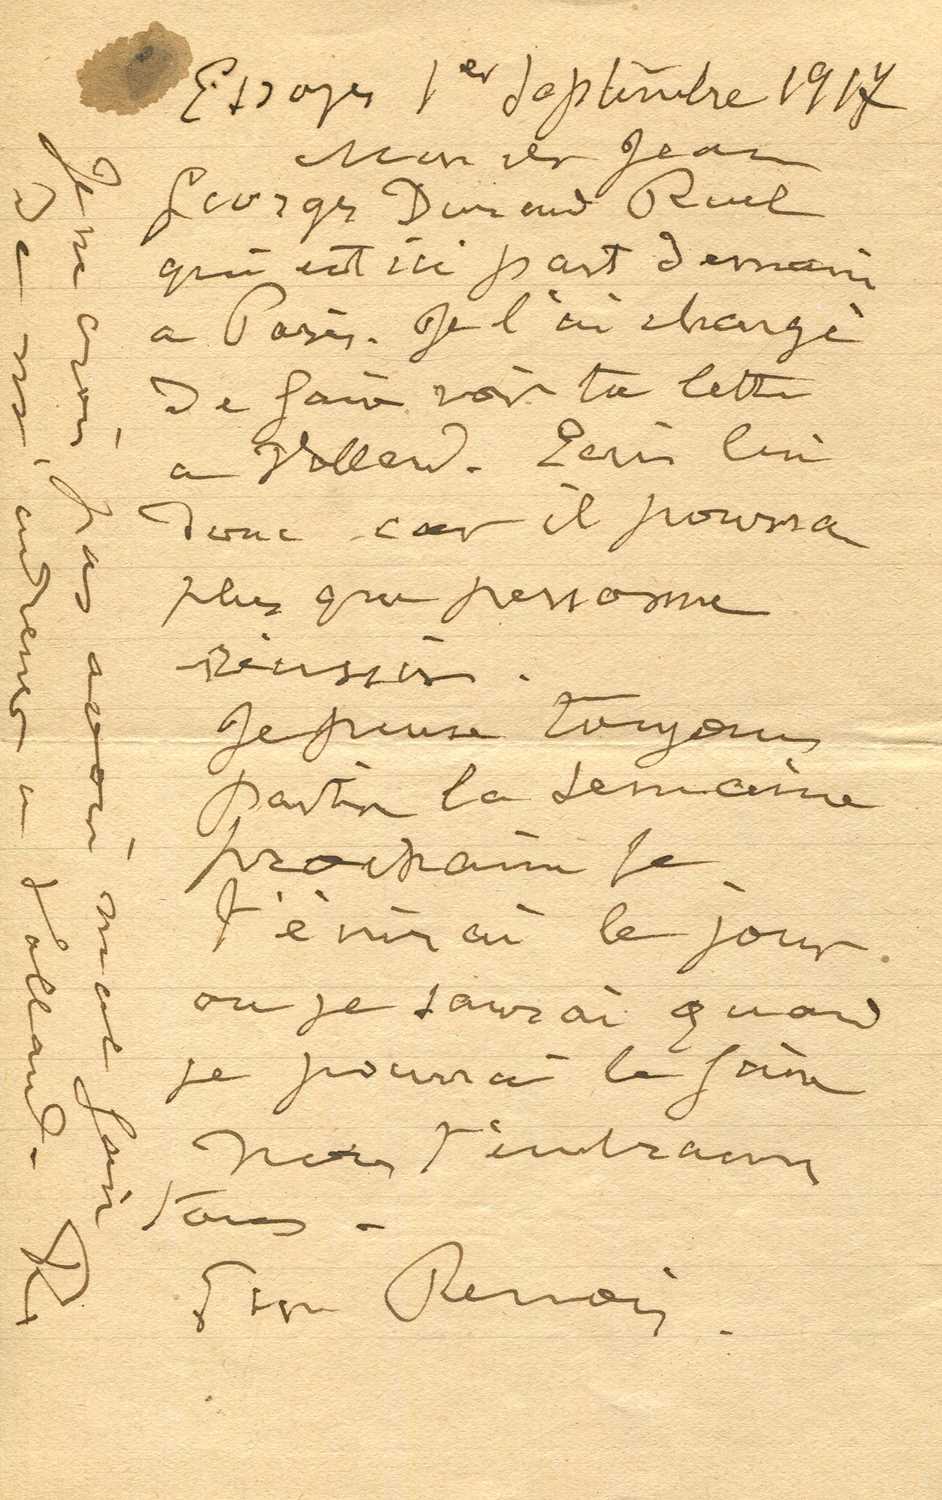 Essoyes 1er Septembre 1917
Mon cher Jean
Georges Durand Ruel
qui est ici part demain
a Paris. Je l'ai chargé
de faire voir ta lettre
a Vollard. Ecris lui
donc car il pourra
plus que personne
réussir.
Je pense toujours
partir la semaine
prochaine Je
t'écrirai le jour
ou je saurai quand
je pourrai le faire
Nous t'embrassons
tous.
Renoir.
Je ne crois pas avoir mal fait
de m'adresser a Vollard. R